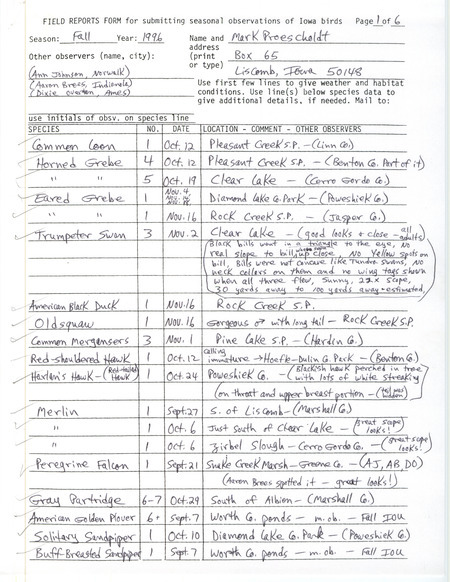 FIELD REPORTS FORM for submitting seasonal observations of Iowa birds Page 1 of 6
Season: Fall Year: 1996 Name and Mark Proescholdt
address
(print Box 65
or type) Liscomb, Iowa 50148
Other observers (name, city):
(Ann Johnson, Norwalk)
(Aaron Brees, Indianola)
(Dixie Overton, Ames)
Use first few lines to give weather and habitat
conditions. Use line(s) below species data to
give additional details, if needed. Mail to:
use initials of obsv. on species line
SPECIES NO. DATE LOCATION - COMMENT - OTHER OBSERVERS
Common Loon 1 Oct. 12 Pleasant Creek S.P. - (Linn Co.)
Horned Grebe 4 Oct. 12 Pleasant Creek S.P. - (Benton Co. Part of it)
" " 5 Oct. 19 Clear Lake - (Cerro Gordo Co.)
Eared Grebe 1 Nov. 4, Diamond Lake Co. Park - (Poweshiek Co.)
" " 1 Nov. 16 Rock Creek S.P. - (Jasper Co.)
Trumpeter Swan 3 Nov. 2 Clear Lake - (good looks & close - all adults)
Black bills went in a triangle to the eye, No
real slope to bill up close, No Yellow spots on
bill. Bills were not concave like Tundra Swans, No
neck collars on them and no wing tags shown
when all three flew, Sunny, 22x scope,
30 yards away to 100 yards away - estimated.
American Black Duck 1 Nov. 16 Rock Creek S.P.
Oldsquaw 1 Nov. 16 Gorgeous ♂ with long tail - Rock Creek S.P.
Common Mergansers 3 Nov. 1 Pine Lake S.P. - (Hardin Co.)
Red-shouldered Hawk 1 Oct. 12 calling immature → Hoefle-Dulin Co. Park - (Benton Co.)
Harlan's Hawk - (Red-tailed Hawk) 1 Oct. 24 Poweshiek Co. - (Blackish hawk perched in tree
with lots of white streaking
(on throat and upper breast portion - (tail was hidden)
Merlin 1 Sept. 27 S. of Liscomb - (Marshall Co.)
" 1 Oct. 6 Just south of Clear Lake - (great scope looks!)
" 1 Oct. 6 Zirbel Slough - Cerro Gordo Co. - (great scope looks!)
Peregrine Falcon 1 Sept. 21 Snake Creek Marsh - Greene Co. - (AJ, AB, DO)
(Aaron Brees spotted it - great looks!)
Gray Partridge 6-7 Oct. 29 South of Albion - (Marshall Co.)
American Golden Plover 6+ Sept. 7 Worth Co. ponds - m.ob. - Fall IOU
Solitary Sandpiper 1 Oct. 10 Diamond Lake Co. Park - (Poweshiek Co.)
Buff Breasted Sandpiper 1 Sept. 7 Worth Co. ponds - m.ob. - Fall IOU